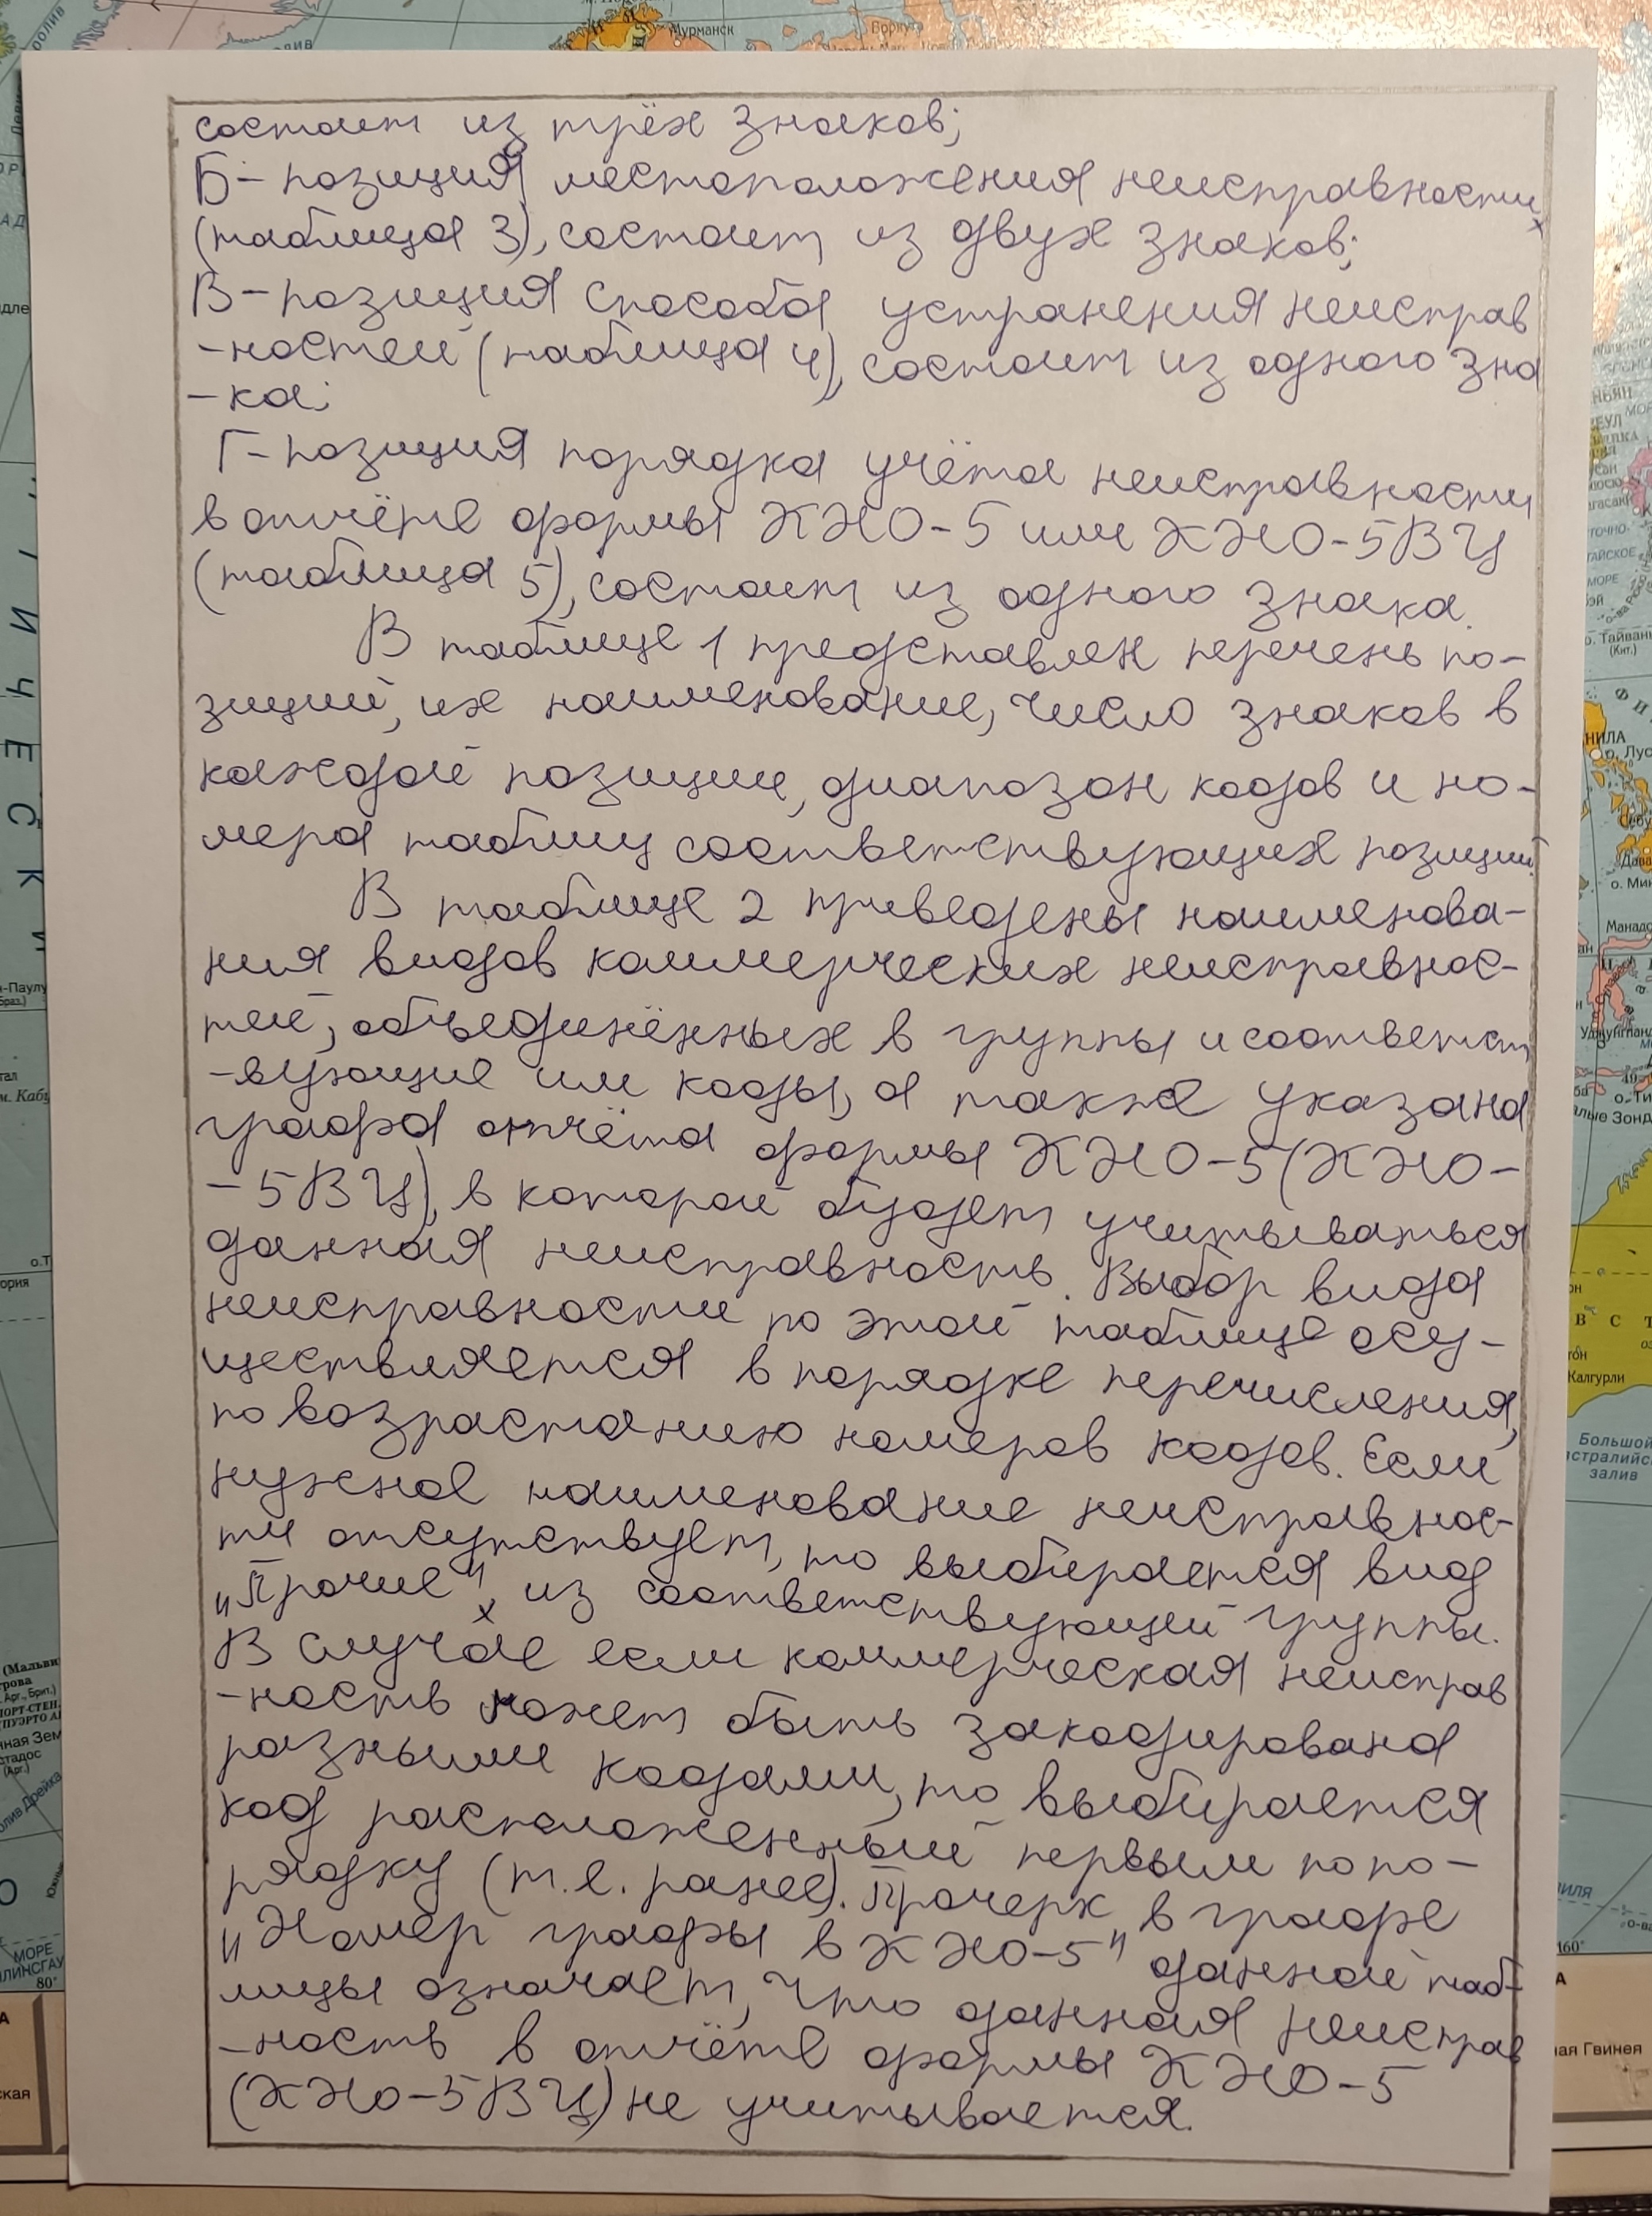 состоит из трёх знаков;
Б- позиция местоположения неисправности
(таблица 3), состоит из двух знаков;
В-позиция способа устранения неисправ
-ностей (таблица 4), состоит из одного зна
-ка;
Г-позиция порядка учёта неисправности
в отчёте формы КНО-5 или КНО-5ВЦ
(таблица 5), состоит из одного знака.
В таблице 1 представлен перечень по-
зиций, их наименование, число знаков в
каждой позиции, диапозон кодов и но-
мера таблиц соответствующих позиций.
В таблице 2 приведены наименова-
ния видов коммерческих неисправнос-
тей, объединённых в группы и соответст
-вующие им коды, а также указана
графа отчёта формы КНО-5 (КНО-
-5ВЦ), в которой будет учитываться
данная неисправность. Выбор вида
неисправности по этой таблице осу-
ществляется в порядке перечисления,
по возрастанию номеров кодов. Если
нужное наименование неисправнос-
ти отсутствует, то выбирается вид
"Прочие" из соответствующей группы.
В случае если коммерческая неисправ
-ность может быть закодирована
разными кодами, то выбирается
код расположенный первым по по-
рядку (т.е. ранее). Прочерк в графе
"Номер графы в КНО-5" данной таб-
лицы означает, что данная неисправ
-ность в отчёте формы КНО-5
(КНО-5ВЦ) не учитывается.
Мурманск
Воркута
МОРЕ
80°
НИЛА
о. Тайвань
(Кит.)
Калгурли
Большой
залив
160°